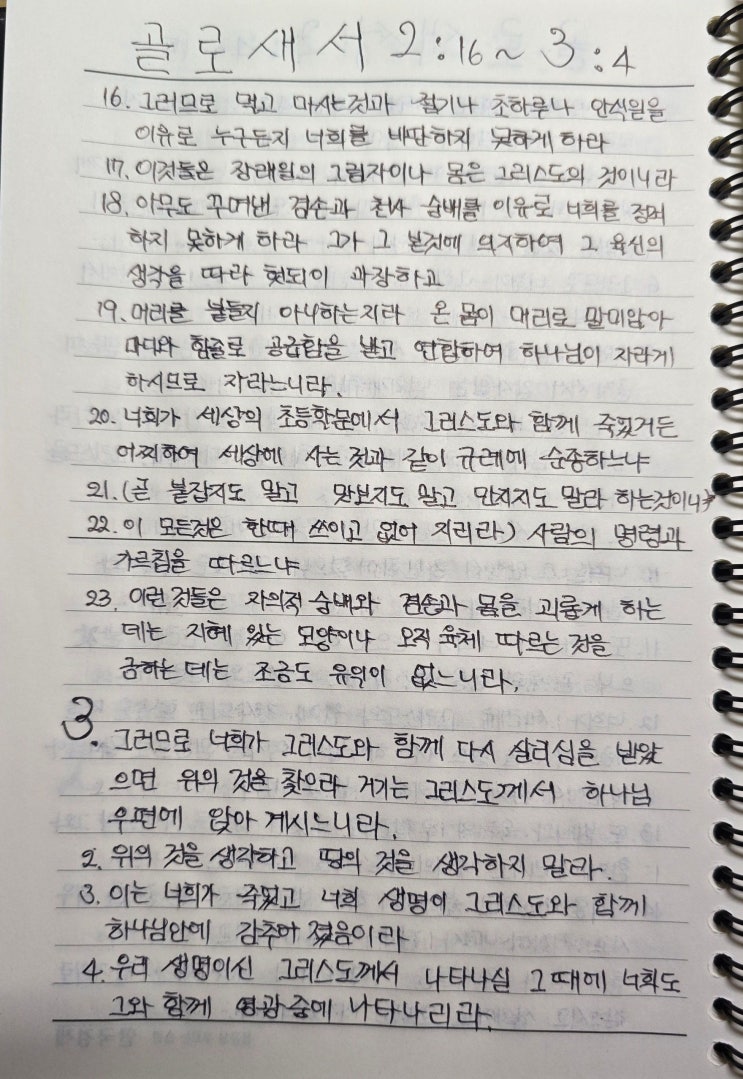 골로새서 2:16~3:4
16. 그러므로 먹고 마시는것과 절기나 초하루나 안식일을
이유로 누구든지 너희를 비판하지 못하게 하라
17. 이것들은 장래일의 그림자이나 몸은 그리스도의 것이니라
18. 아무도 꾸며낸 겸손과 천사 숭배를 이유로 너희를 정죄
하지 못하게 하라 그가 그 본것에 의지하여 그 육신의
생각을 따라 헛되이 과장하고
19. 머리를 붙들지 아니하는지라 온 몸이 머리로 말미암아
마디와 힘줄로 공급함을 받고 연합하여 하나님이 자라게
하시므로 자라느니라.
20. 너희가 세상의 초등학문에서 그리스도와 함께 죽었거든
어찌하여 세상에 사는 것과 같이 규례에 순종하느냐
21. (곧 붙잡지도 말고 맛보지도 말고 만지지도 말라 하는것이니
22. 이 모든것은 한때 쓰이고 없어 지리라) 사람의 명령과
가르침을 따르느냐
23. 이런 것들은 자의적 숭배와 겸손과 몸을 괴롭게 하는
데는 지혜 있는 모양이나 오직 육체 따르는 것을
금하는 데는 조금도 유익이 없느니라.
3. 그러므로 너희가 그리스도와 함께 다시 살리심을 받았
으면 위의 것을 찾으라 거기는 그리스도께서 하나님
우편에 앉아 계시느니라.
2. 위의 것을 생각하고 땅의 것을 생각하지 말라.
3. 이는 너희가 죽었고 너희 생명이 그리스도와 함께
하나님안에 감추어 졌음이라
4. 우리 생명이신 그리스도께서 나타나실 그 때에 너희도
그와 함께 영광 중에 나타나리라.